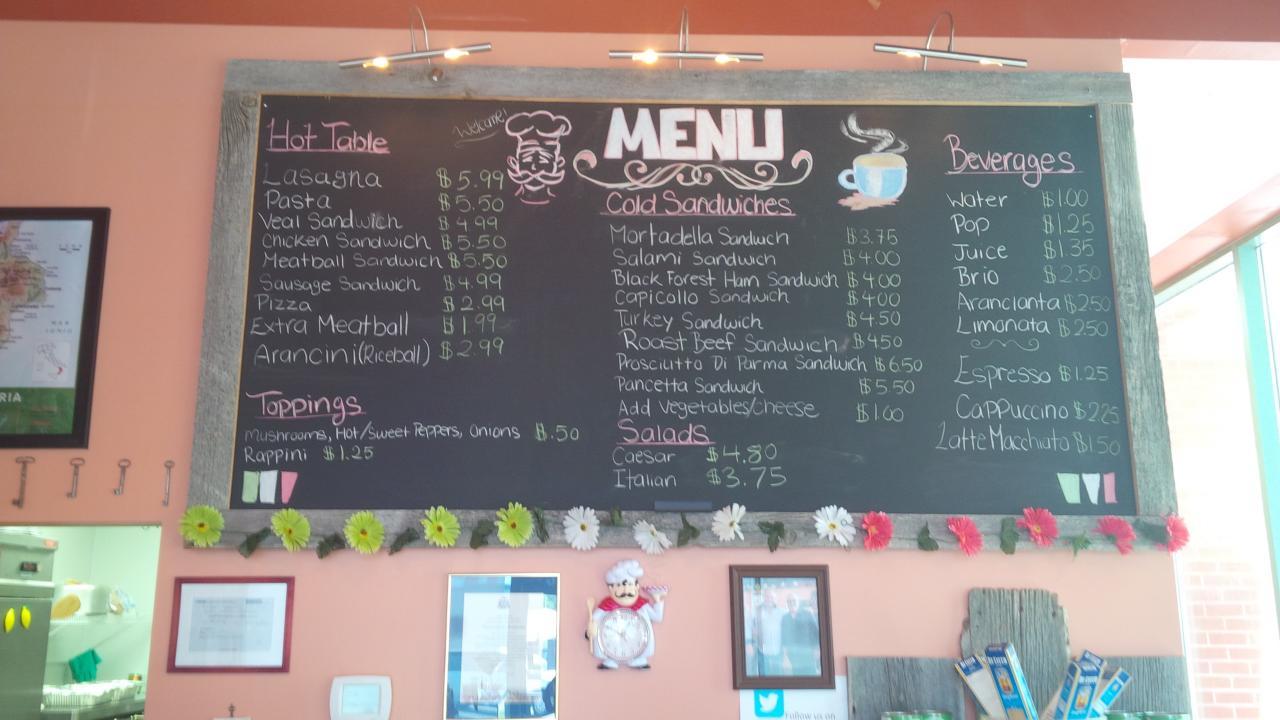 Welcome!
MENU
Hot Table
Lasagna $5.99
Pasta $5.50
Veal Sandwich $4.99
Chicken Sandwich $5.50
Meatball Sandwich $5.50
Sausage Sandwich $4.99
Pizza $2.99
Extra Meatball $1.99
Arancini(Riceball) $2.99
Toppings
Mushrooms, Hot/Sweet Peppers, Onions $.50
Rappini $1.25
Cold Sandwiches
Mortadella Sandwich $3.75
Salami Sandwich $4.00
Black Forest Ham Sandwich $4.00
Capicollo Sandwich $4.00
Turkey Sandwich $4.50
Roast Beef Sandwich $4.50
Prosciutto Di Parma Sandwich $6.50
Pancetta Sandwich $5.50
Add Vegetables/Cheese $1.00
Salads
Caesar $4.80
Italian $3.75
Beverages
Water $1.00
Pop $1.25
Juice $1.35
Brio $2.50
Arancianta $2.50
Limonata $2.50
Espresso $1.25
Cappuccino $2.25
Latte Macchiato $1.50
RIA
Follow us on